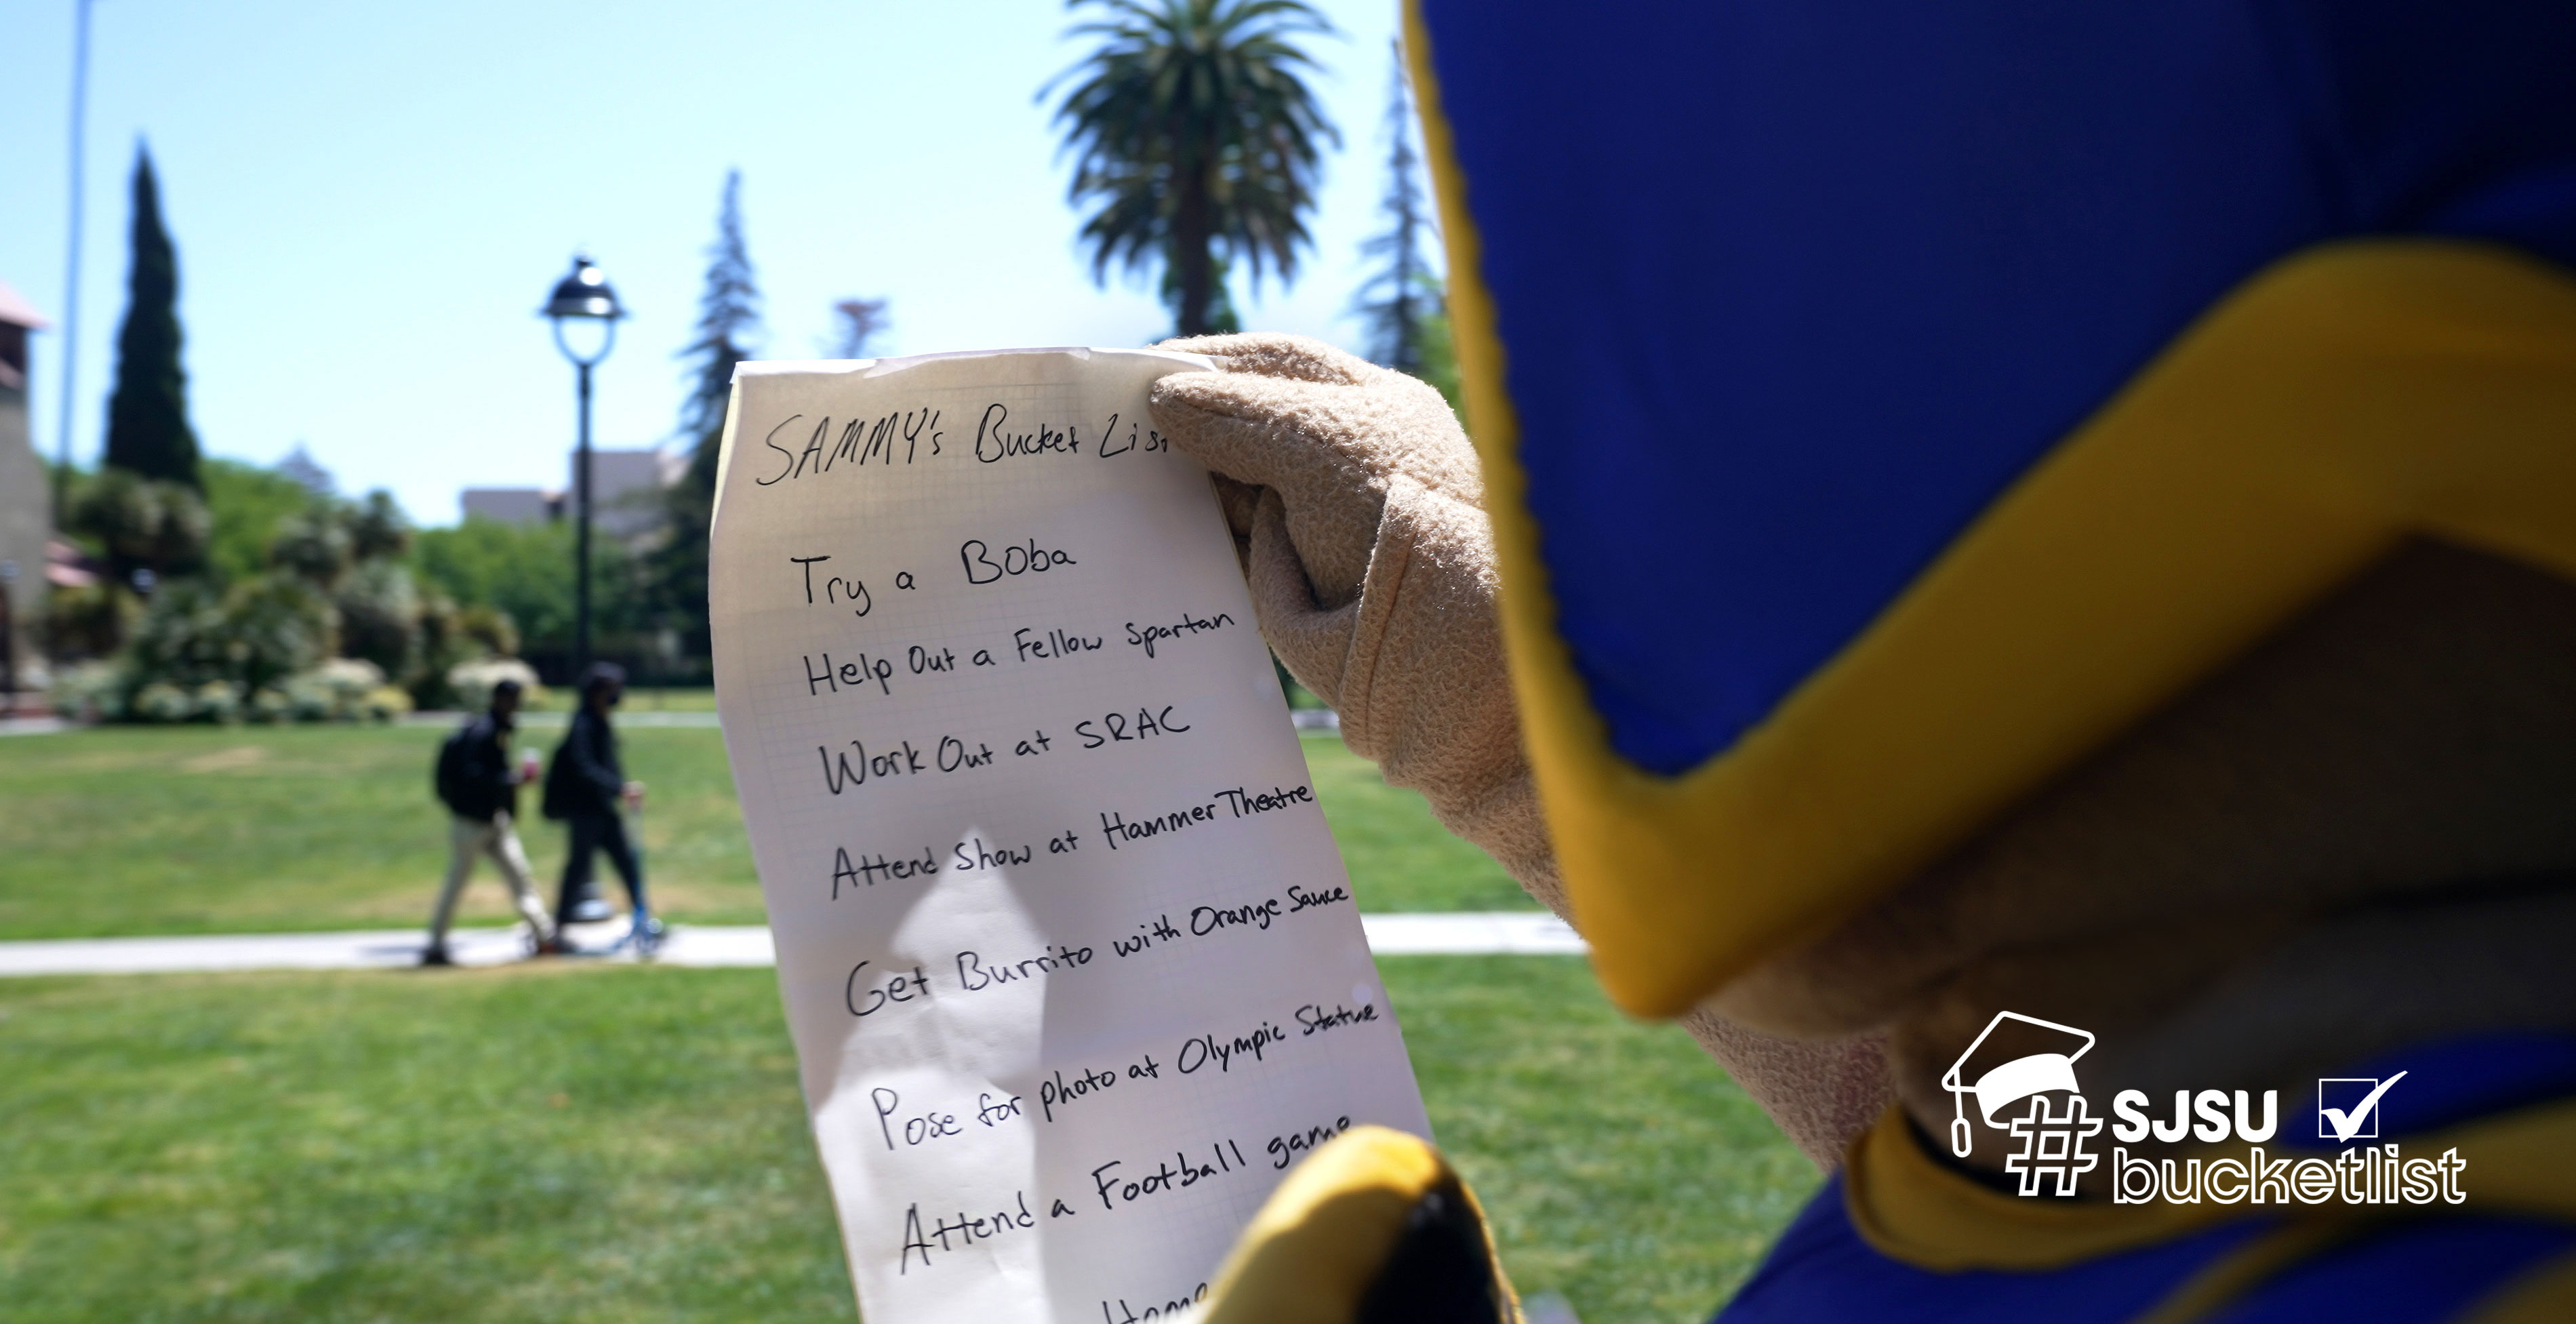 SAMMY's Bucket List
Try a Boba
Help Out a Fellow Spartan
Work Out at SRAC
Attend Show at Hammer Theatre
Get Burrito with Orange Sauce
Pose for photo at Olympic Statue
Attend a Football game
Home
#SJSU
bucketlist